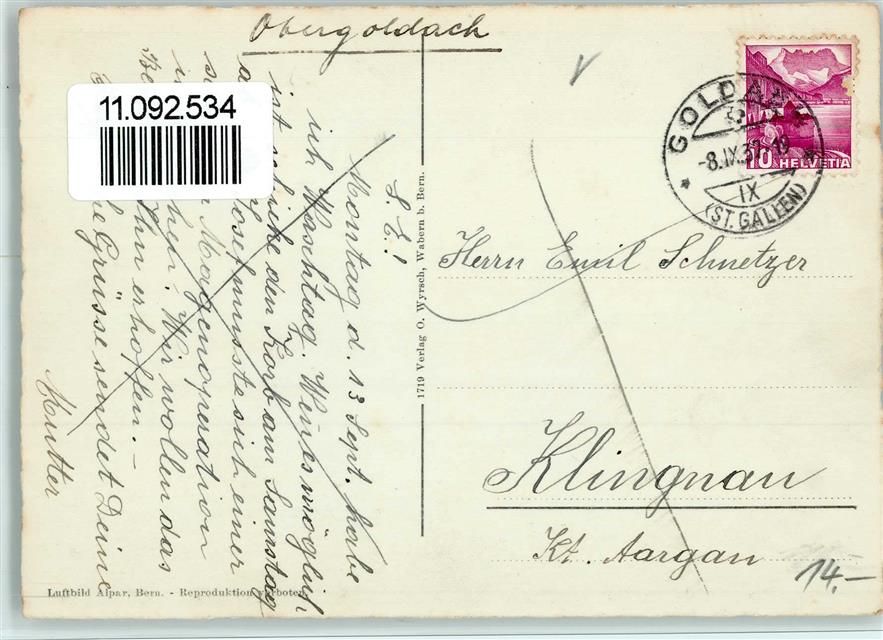 Obergoldach
11.092.534
GOLDACH
-8.IX.37-19
IX
(ST. GALLEN)
10 HELVETIA
L. E!
Montag d. 13 Sept. habe
ich Waschtag. Wenn es möglich
ist schicke den Korb am Samstag
Josef musste sich einer
Magenoperation
Wir wollen das
Ihm erhoffen. –
Grüsse sendet Deine
Mutter
1719 Verlag O. Wyrsch, Wabern b. Bern.
Herrn Emil Schnetzer
Klingnau
Kt. Aargau
14.-
Luftbild Alpar, Bern. - Reproduktion verboten